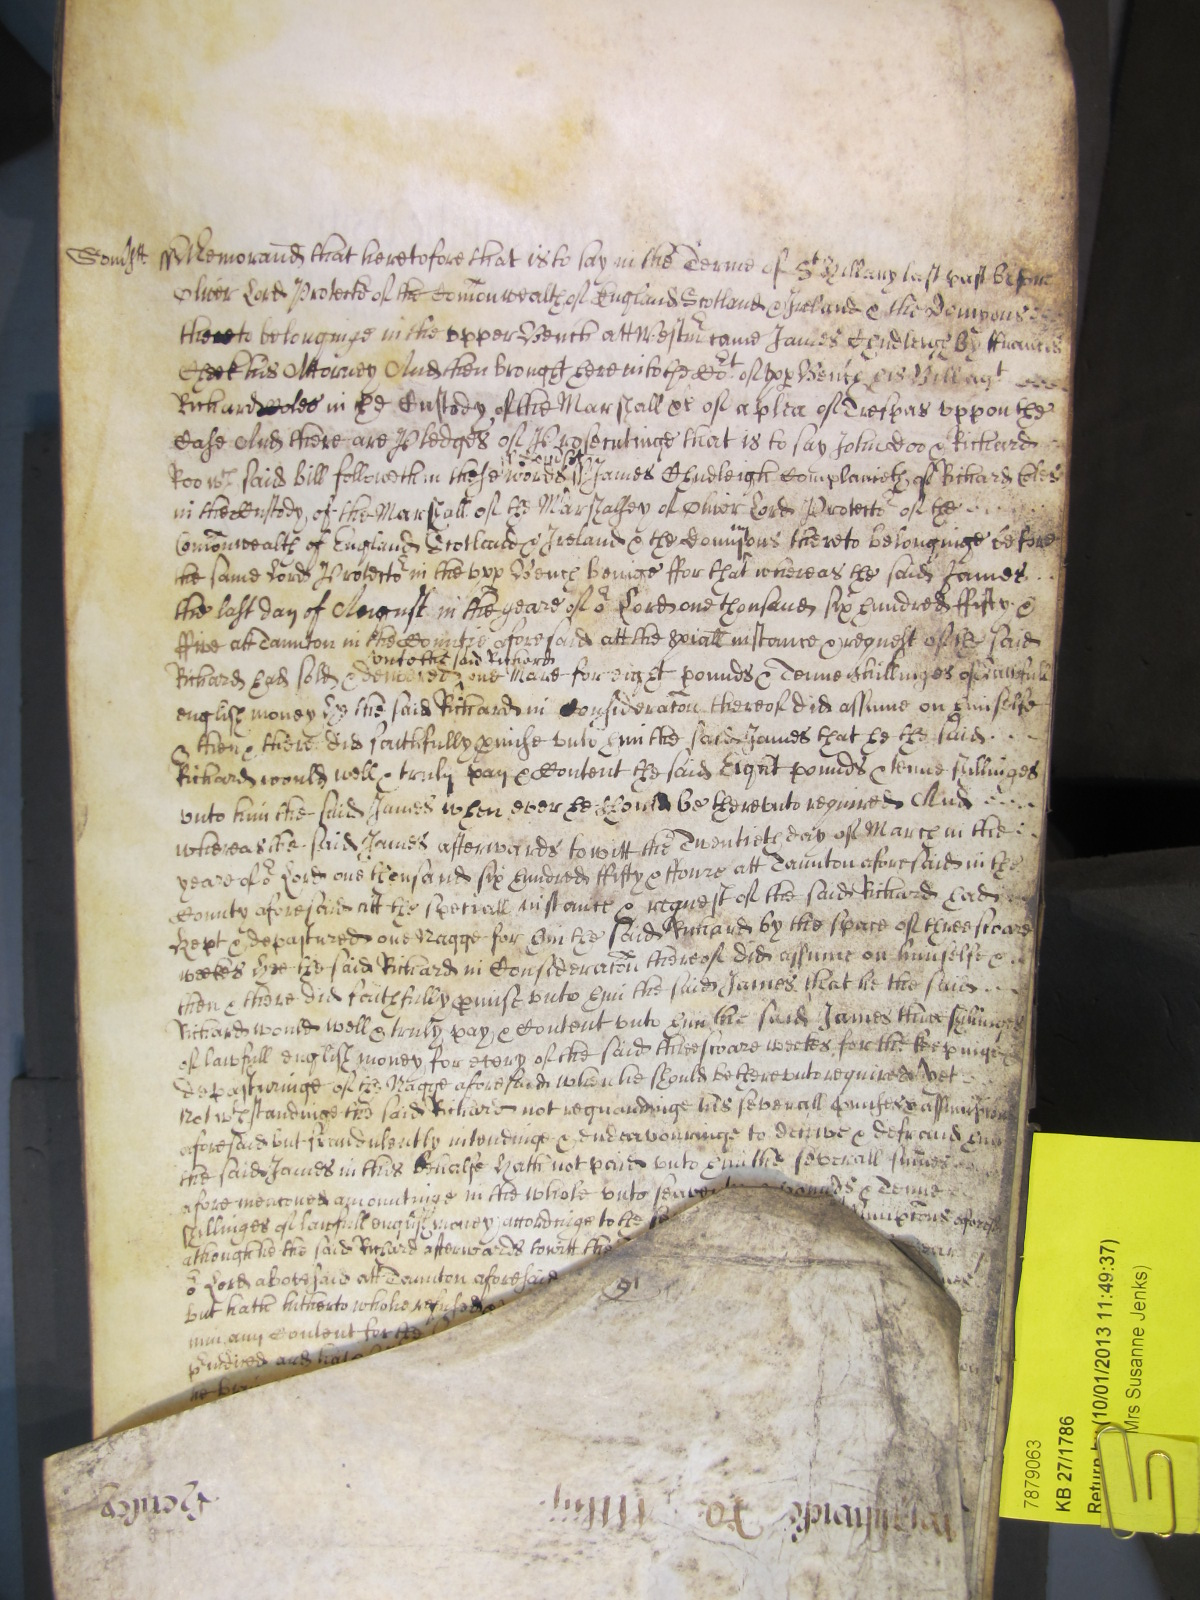 Somsett ss Memorand that heretofore that is to say in the Terme of St Hillary last past before
Oliver Lord Protector of the Comonwealth of England Scotland & Ireland & the Dominons
thereto belonginge in the upper Bench att Westmr came James Chudleigh By Francis
his Attorney And then brought here into the Cort of upp Bench his Bill agt
Richard Coles in the Custody of the Marshall &c of a plea of Trespas uppon the
Case And there are Pledges of Prosecutinge that is to say John Doo & Richard
Roo wch said bill followeth in these words ss James Chudleigh Complaineth of Richard Coles
in the Custody of the Marshall of the Marshalsey of Oliver Lord Protector of the
Comonwealth of England Scotland & Ireland & the Dominions thereto belonginge before
the same Lord Protector in the upp Bench beinge ffor that whereas the said James
the last day of August in the yeare of or Lord one thousand six hundred ffifty &
ffive att Taunton in the Countie aforesaid att the spiall instance & request of the said
unto the said Richard
Richard had sold & delivered one Mare for eight pounds & Tenne shillinges of lawfull
english money he the said Richard in Consideraton thereof did assume on himselfe
& then & there did faithfully pmise unto him the said James that he the said
Richard would well & truly pay & Content the said Eight pounds & tenne shillinges
unto him the said James when ever he should be thereunto required And
whereas the said James afterwards to witt the Twentieth day of March in the
yeare of or Lord one thousand six hundred ffifty & ffoure att Taunton aforesaid in the
County aforesaid att the speciall instance & request of the said Richard had
kept & depastured one Nagge for him the said Richard by the space of threescoare
weekes hee the said Richard in Consideraton thereof did assume on himselfe &
then & there did faithfully pmise unto him the said James that he the said
Richard would well & truly pay & Content unto him the said James three shillinges
of lawfull english money for every of the said threescoare weekes for the keepinge &
depasturinge of the Nagge aforesaid when he should be thereunto required Yet
Not wthstandinge the said Richard not regardinge his severall pmises & assumptions
aforesaid but fraudulently intendinge & endeavouringe to deceive & defraud him
the said James in this behalfe hath not paid unto him the severall sumes
afore mentoned amountinge in the whole unto seaven pounds & Tenne
shillinges of lawfull english money accordinge to the assumptions aforesd
althoughe he the said Richard afterwards to witt the
or Lord abovesaid att Taunton aforesaid
but hath hitherto wholie refused
any Content for the
and hath
he
91
7879063
KB 27/1786
Return by (10/01/2013 11:49:37)
Mrs Susanne Jenks)
Henley
Ro